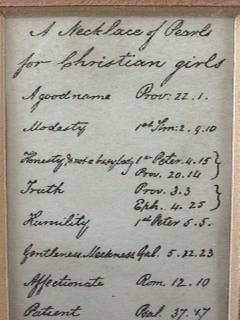 A Necklace of Pearls
for Christian girls
A good name Prov. 22.1.
Modesty 1st Tim: 2.9.10
Honesty, & not a busy body 1st Peter 4.15
Prov. 20.14
Truth Prov. 3.3
Eph. 4.25
Humility 1st Peter 5.5.
Gentleness, Meekness Gal. 5.22.23
Affectionate Rom. 12.10
Patient Psal. 37.